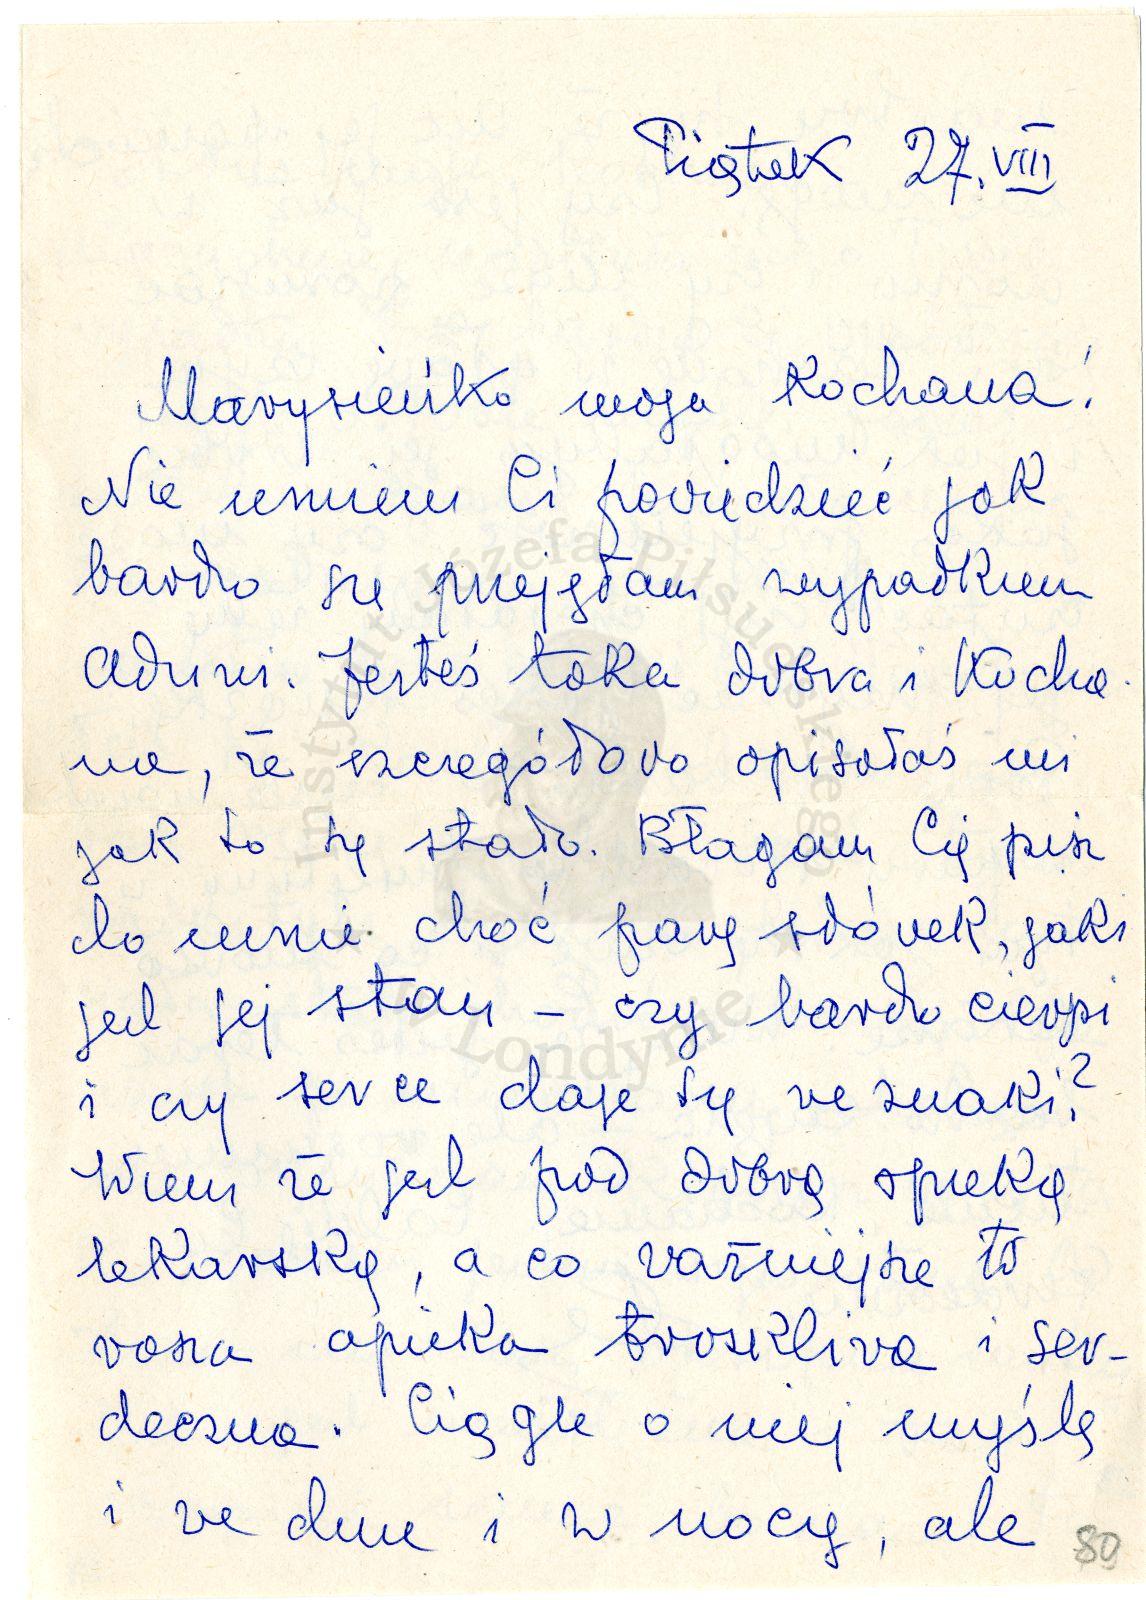 Piątek 27.VIII
Marysieńko moja Kochana!
Nie umiem Ci powiedzieć jak
bardzo się przejęłam wypadkiem
Aduni. Jesteś taka dobra i Kocha-
na, że szczegółowo opisałaś mi
jak to się stało. Błagam Cię pisz
do mnie choć parę słówek, jaki
jest jej stan – czy bardzo cierpi
i czy serce daje się we znaki?
Wiem że jest pod dobrą opieką
lekarską, a co ważniejsze to
wasza opieka troskliwa i ser-
deczna. Ciągle o niej myślę
i we dnie i w nocy, ale
80
Instytut Józefa Piłsudskiego
w Londynie